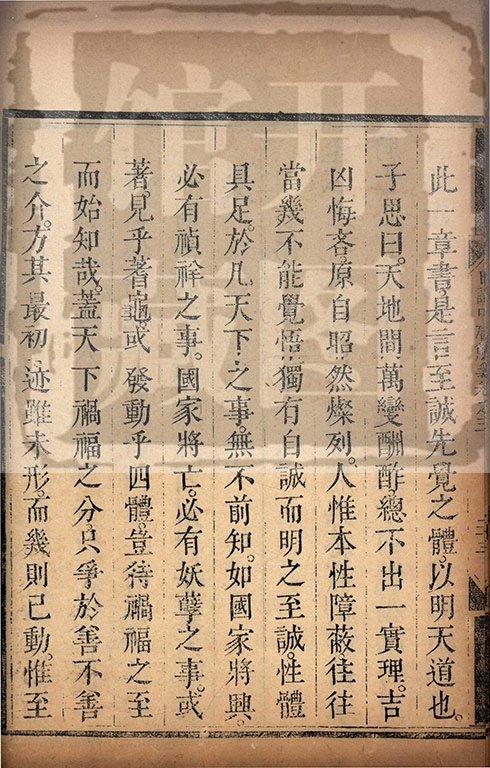 此一章書是言至誠先覺之體以明天道也。
子思曰。天地間萬變酬酢總不出一實理。吉
凶悔吝。原自昭然燦列。人惟本性障蔽往往
當幾不能覺悟。獨有自誠而明之至誠。性體
具足。於凡天下之事。無不前知。如國家將興。
必有禎祥之事。國家將亡。必有妖孽之事。或
著見乎蓍龜。或發動乎四體。豈待禍福之至
而始知哉。蓋天下禍福之分。只爭於善不善
之介。方其最初。迹雖未形。而幾則已動。惟至